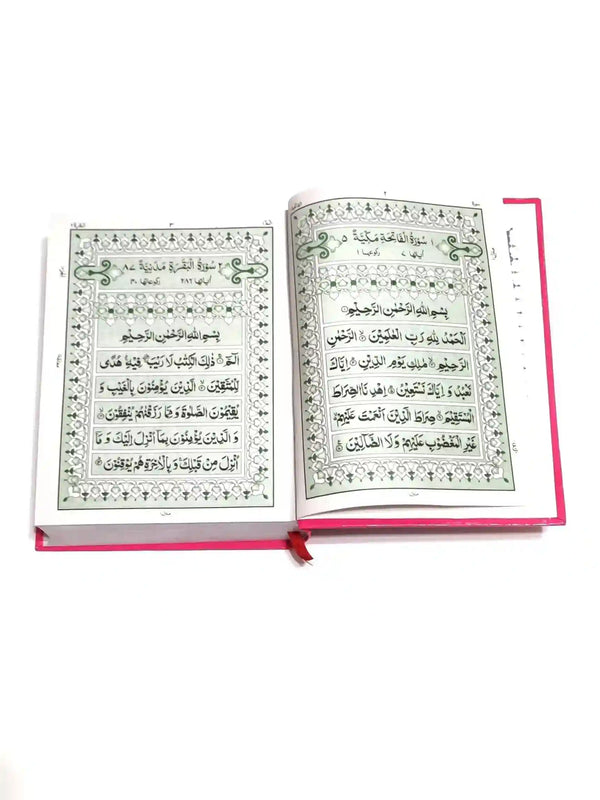 ٢
١ سُوْرَةُ الْفَاتِحَةِ مَكِّيَّةٌ ٥
اٰيَاتُهَا ٧ رُكُوْعُهَا ١
بِسْمِ اللّٰهِ الرَّحْمٰنِ الرَّحِيْمِ
اَلْحَمْدُ لِلّٰهِ رَبِّ الْعٰلَمِيْنَ ۝ الرَّحْمٰنِ
الرَّحِيْمِ ۝ مٰلِكِ يَوْمِ الدِّيْنِ ۝ اِيَّاكَ
نَعْبُدُ وَ اِيَّاكَ نَسْتَعِيْنُ ۝ اِهْدِنَا الصِّرَاطَ
الْمُسْتَقِيْمَ ۝ صِرَاطَ الَّذِيْنَ اَنْعَمْتَ عَلَيْهِمْ
غَيْرِ الْمَغْضُوْبِ عَلَيْهِمْ وَلَا الضَّآلِّيْنَ ۝
٣
٢ سُوْرَةُ الْبَقَرَةِ مَدَنِيَّةٌ ٨٧
اٰيَاتُهَا ٢٨٦ رُكُوْعَاتُهَا ٤٠
بِسْمِ اللّٰهِ الرَّحْمٰنِ الرَّحِيْمِ
الٓمّٓ ۝ ذٰلِكَ الْكِتٰبُ لَا رَيْبَ فِيْهِ هُدًى
لِّلْمُتَّقِيْنَ ۝ الَّذِيْنَ يُؤْمِنُوْنَ بِالْغَيْبِ وَ
يُقِيْمُوْنَ الصَّلٰوةَ وَ مِمَّا رَزَقْنٰهُمْ يُنْفِقُوْنَ ۝
وَ الَّذِيْنَ يُؤْمِنُوْنَ بِمَآ اُنْزِلَ اِلَيْكَ وَ مَآ
اُنْزِلَ مِنْ قَبْلِكَ وَ بِالْاٰخِرَةِ هُمْ يُوْقِنُوْنَ ۝